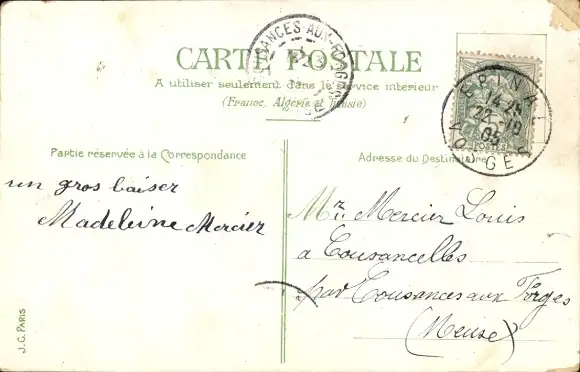 CARTE POSTALE
A utiliser seulement dans le service interieur
(France, Algérie et Tunisie)
Partie réservée à la Correspondance
Adresse du Destinataire
un gros baiser
Madeleine Mercier
Mr. Mercier Louis
a Cousancelles
par Cousances aux Forges
(Meuse)
EPINAL
14 25
22 - 12
05
VOSGES
POSTES
COUSANCES-AUX-FORGES
J. C. PARIS